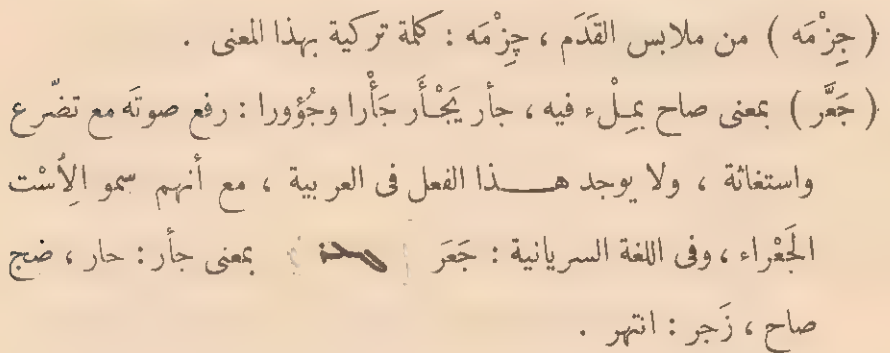 ( جِزْمَه ) من ملابس القَدَم ، چِزْمَه : كلمة تركية بهذا المعنى .
( جَعَّر ) بمعنى صاح بمِلْء فيه ، جأر يَجْأَر جَأْرا وجُؤورا : رفع صوتَه مع تضرّع
واستغاثة ، ولا يوجد هـذا الفعل فى العربية ، مع أنهم سمو الِأسْت
الجَعْراء ، وفى اللغة السريانية : جَعَرَ بمعنى جأر : حار ، ضج
صاح ، زَجر : انتهر .